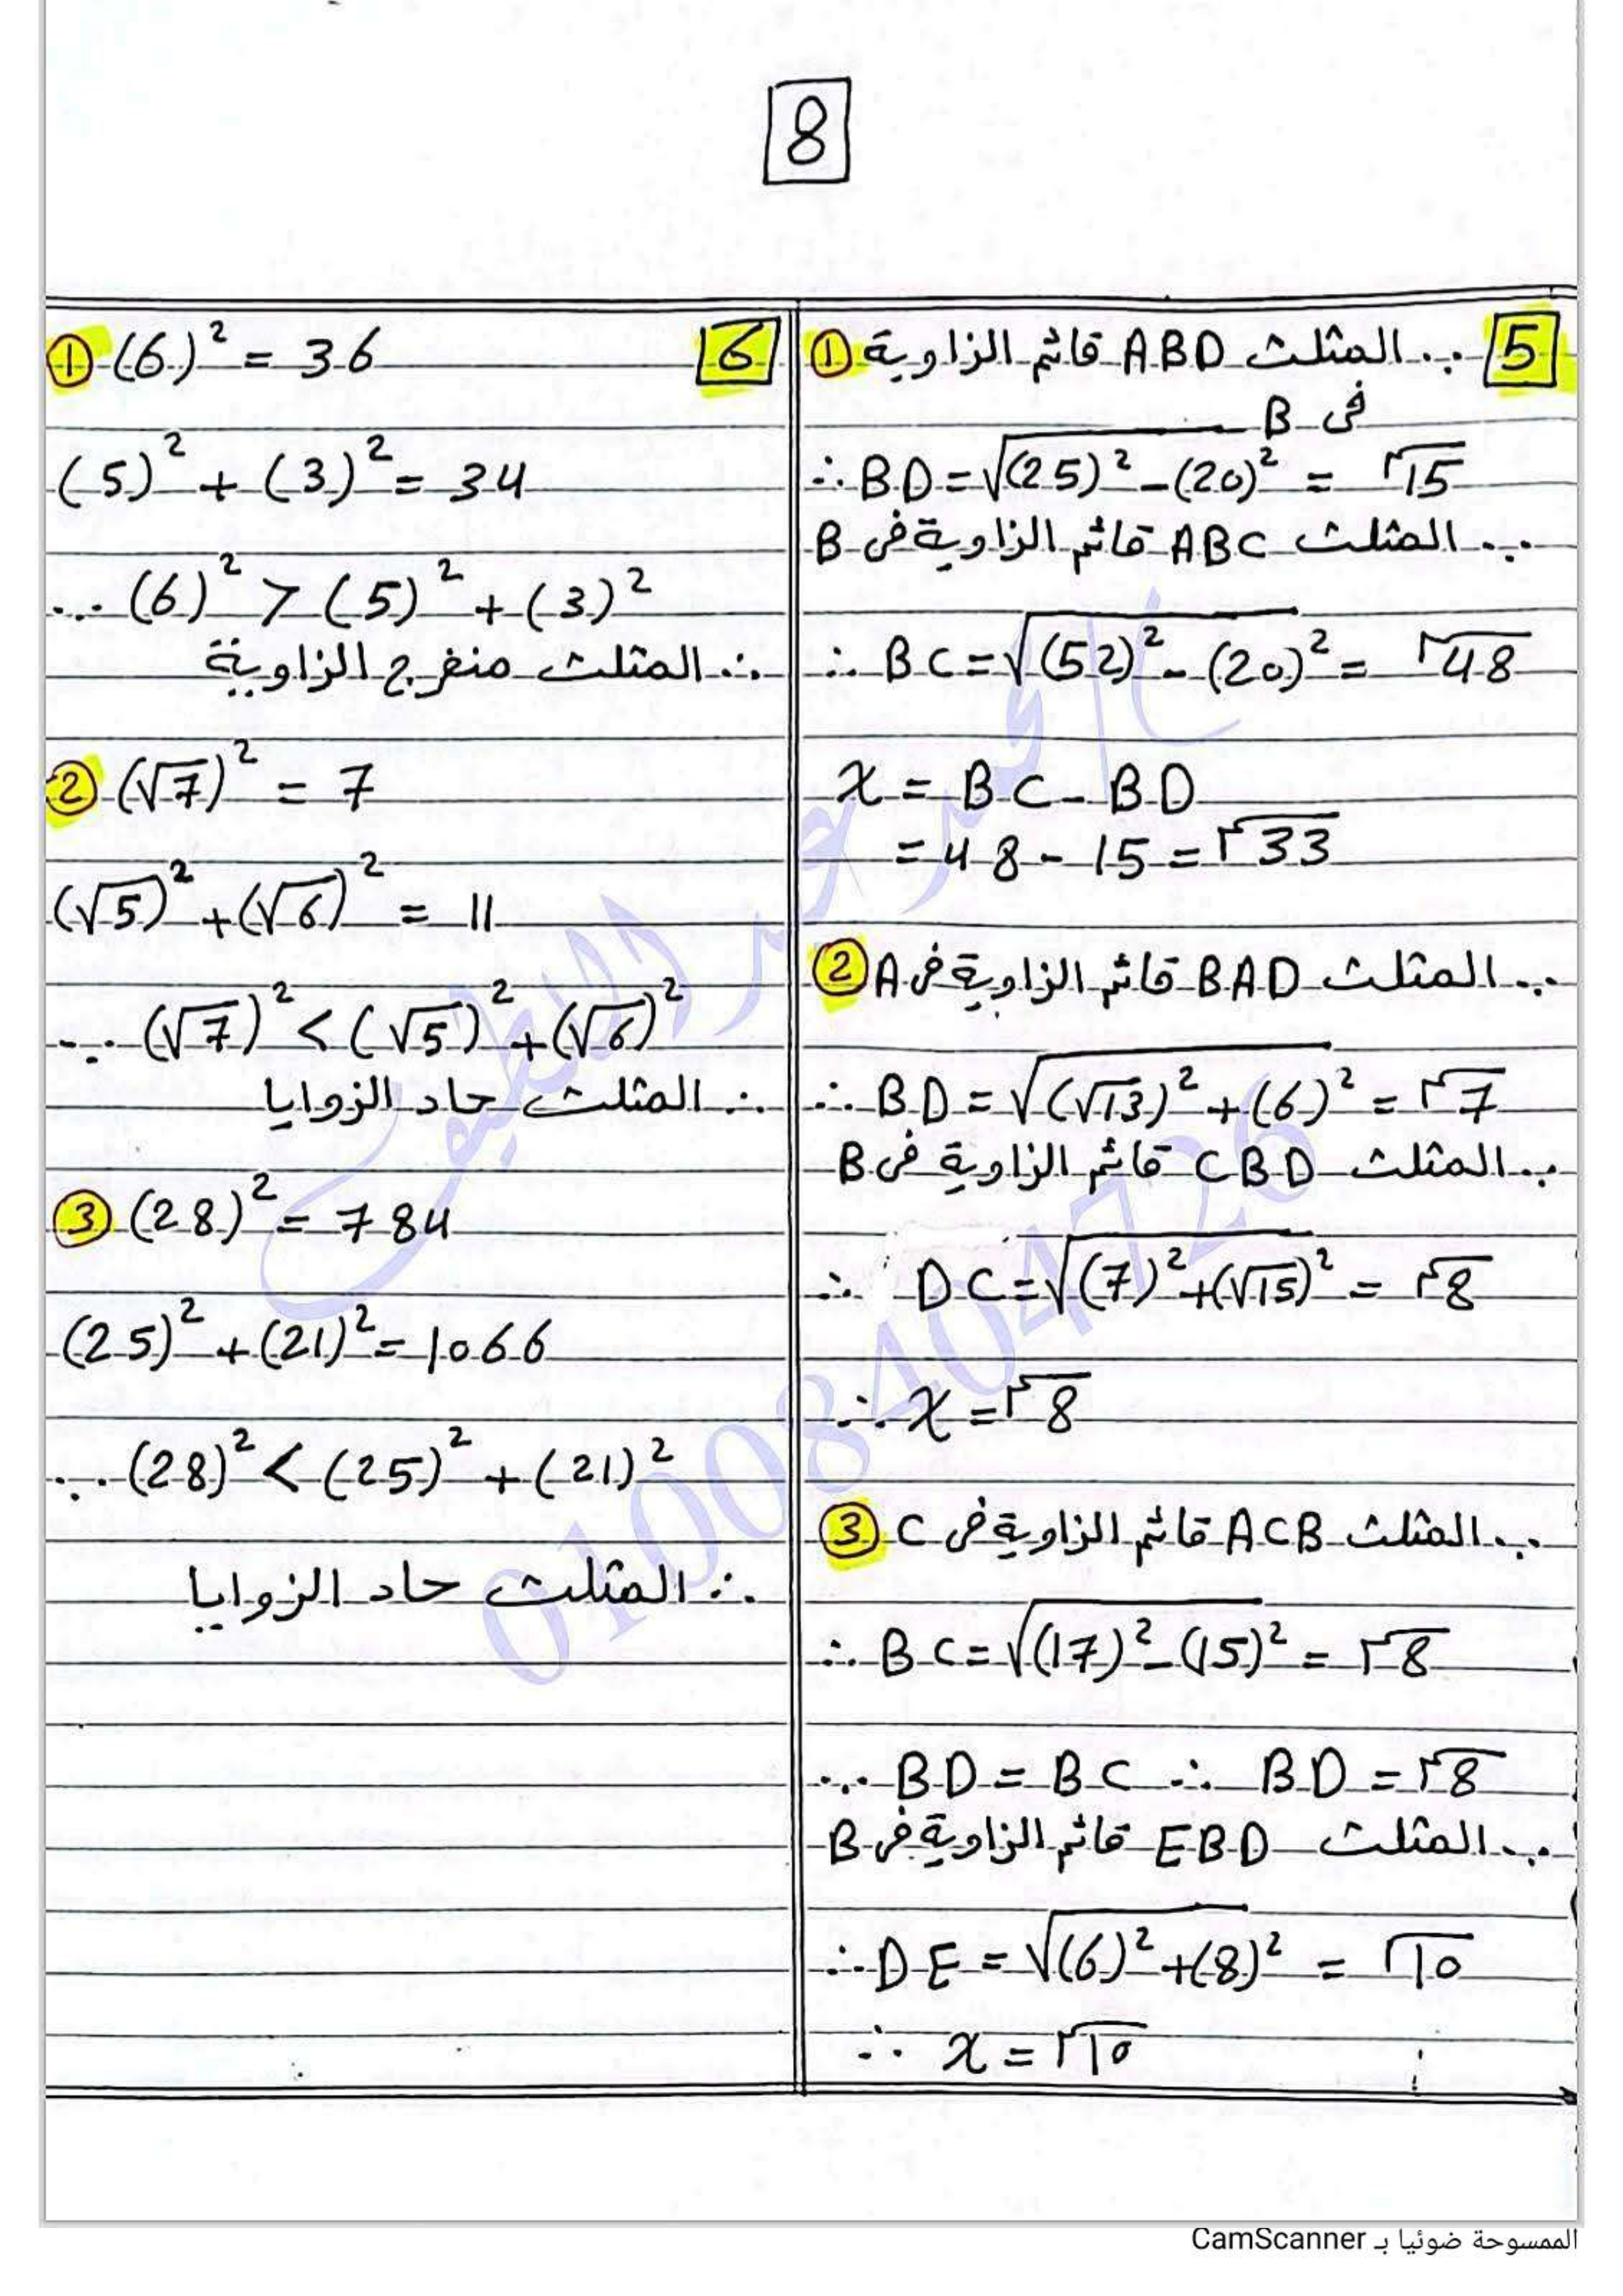 8
5
∵ المثلث ABD قائم الزاوية ①
فى B
∴ BD = √(25)² - (20)² = 15
∵ المثلث ABC قائم الزاوية فى B
∴ BC = √(52)² - (20)² = 48
x = BC - BD
= 48 - 15 = 33
② ∵ المثلث BAD قائم الزاوية فى A
∴ BD = √(√13)² + (6)² = 7
∵ المثلث CBD قائم الزاوية فى B
∴ DC = √(7)² + (√15)² = 8
∴ x = 8
③ ∵ المثلث ACB قائم الزاوية فى C
∴ BC = √(17)² - (15)² = 8
∵ BD = BC ∴ BD = 8
∵ المثلث EBD قائم الزاوية فى B
∴ DE = √(6)² + (8)² = 10
∴ x = 10
6
① (6)² = 36
(5)² + (3)² = 34
∵ (6)² > (5)² + (3)²
∴ المثلث منفرج الزاوية
② (√7)² = 7
(√5)² + (√6)² = 11
∵ (√7)² < (√5)² + (√6)²
∴ المثلث حاد الزوايا
③ (28)² = 784
(25)² + (21)² = 1066
∵ (28)² < (25)² + (21)²
∴ المثلث حاد الزوايا
01008404726
الممسوحة ضوئيا بـ CamScanner